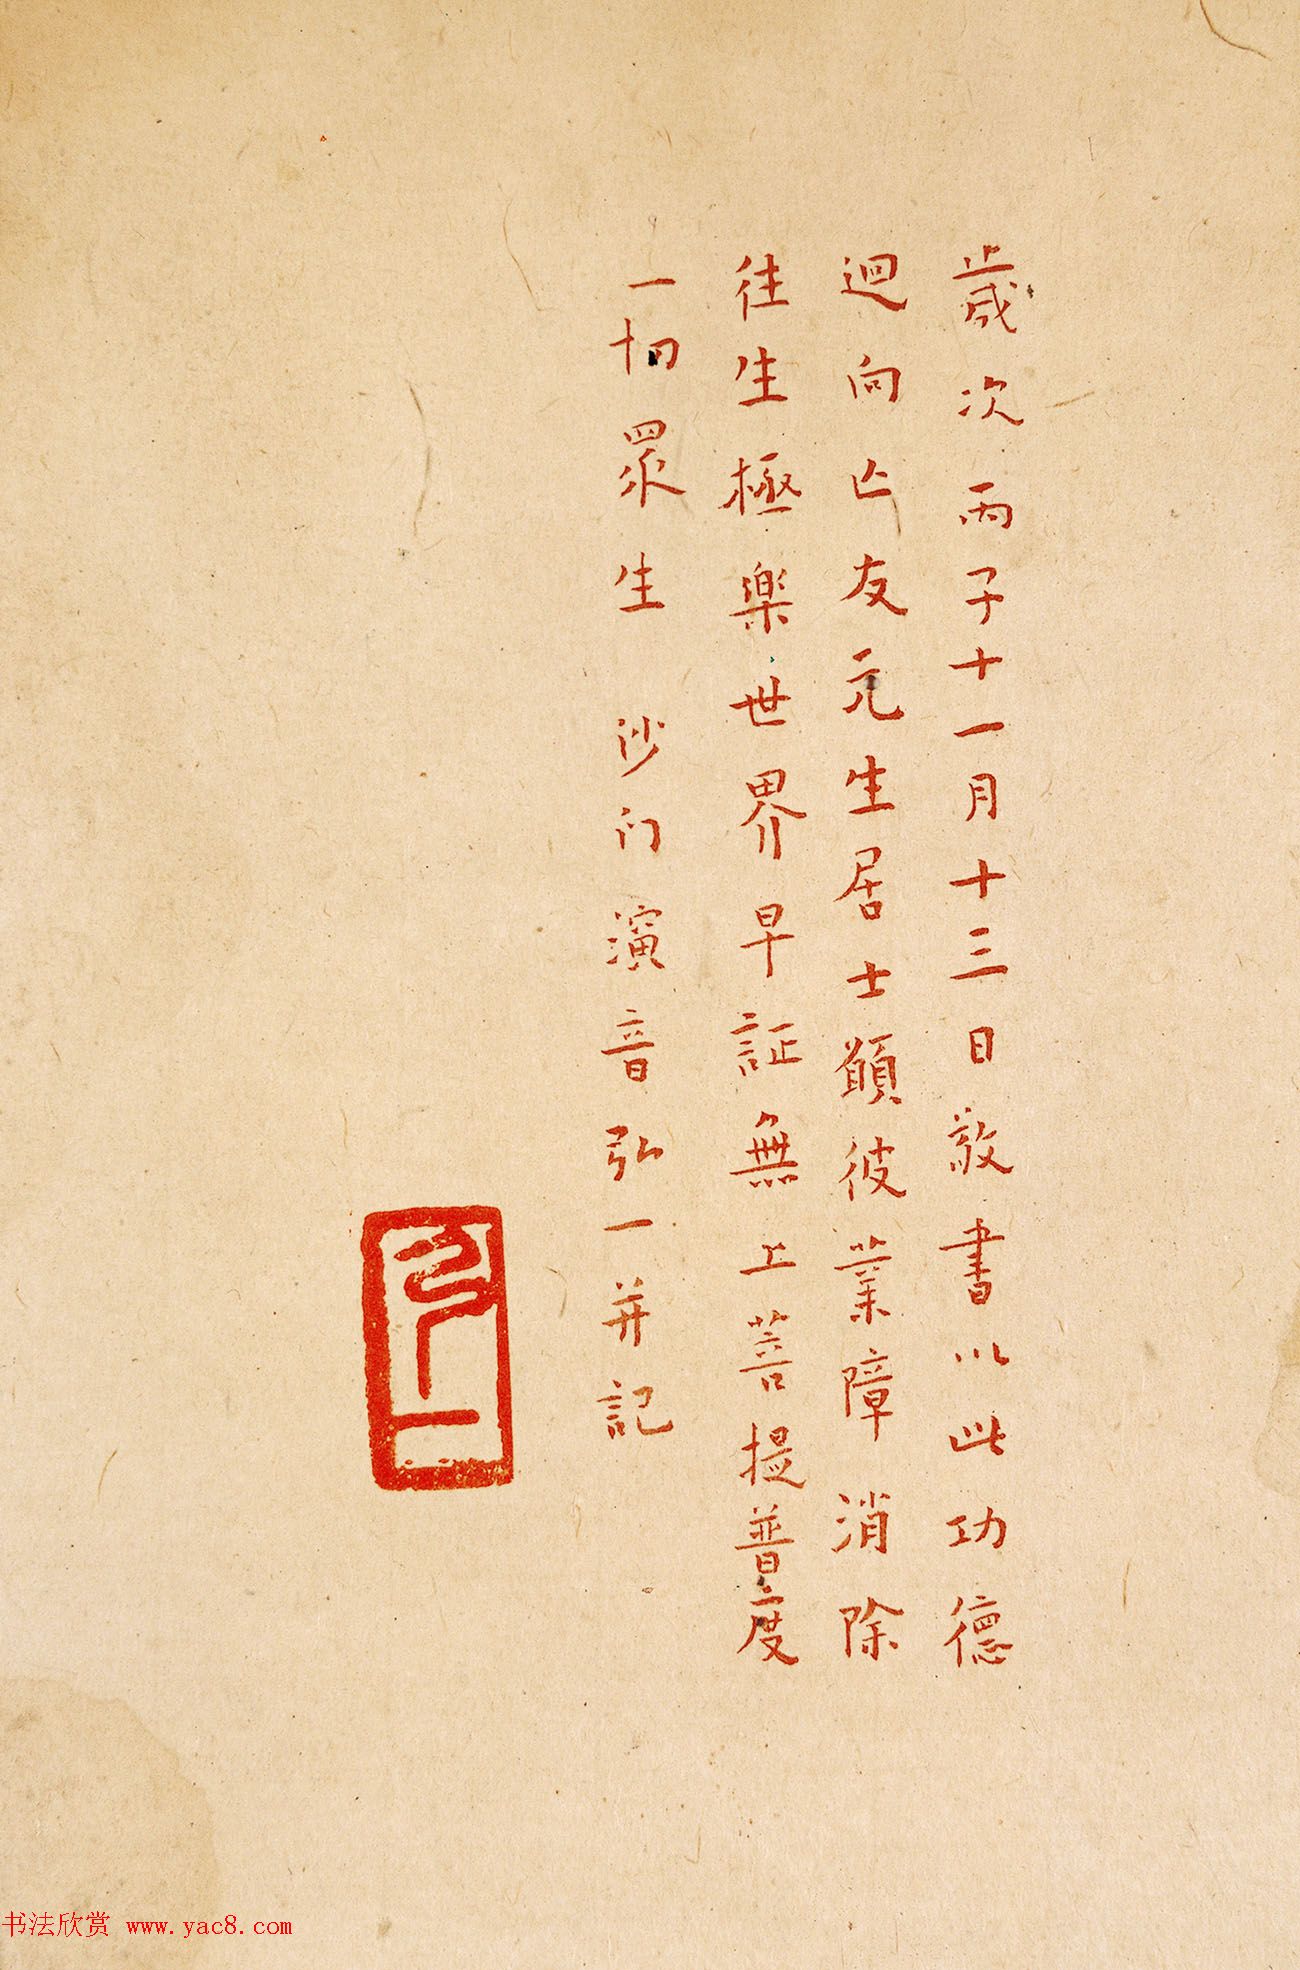 歲次丙子十一月十三日敬書以此功德
迴向亡友元生居士願彼業障消除
往生極樂世界早証無上菩提普度
一切眾生 沙门演音弘一并記
书法欣赏 www.yac8.com